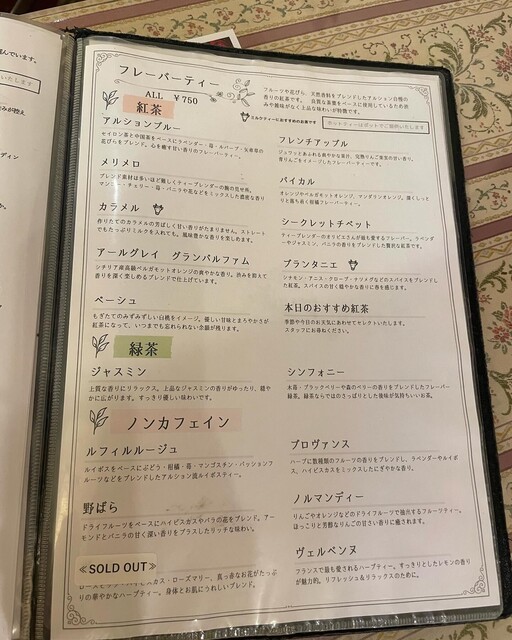 フレーバーティー
ALL ￥750
フルーツや花びら、天然香料をブレンドしたアルション自慢の
香りの紅茶です。 良質な茶葉をベースに使用しているため渋
みや雑味がなく上品な味わいが特徴です。
ミルクティーにおすすめの紅茶です
ホットティーはポットでご提供いたします
紅茶
アルションブルー
セイロン茶と中国茶をベースにラベンダー・苺・ルバーブ・矢車草の
花びらをブレンド。心を癒す甘い香りのフレーバーティー。
メリメロ
ブレンド素材は多いほど難しくティーブレンダーの腕の見せ所。
マンゴー・チェリー・苺・バニラや花などをミックスした濃密な香り
カラメル
作りたてのカラメルの芳ばしく甘い香りがたまりません。ストレート
でもたっぷりミルクを入れても。風味豊かな香りを楽しめます。
アールグレイ グランパルファム
シチリア産高級ベルガモットオレンジの爽やかな香り。渋みを抑えて
香りを深く楽しめるブレンドで仕上げています。
ペーシュ
もぎたてのみずみずしい白桃をイメージ。優しい甘味とまろやかさが
紅茶になって、いつまでも忘れられない余韻が残ります。
フレンチアップル
ジュワッとあふれる爽やかな果汁、完熟りんご果実の甘い香り。
青りんごをイメージしたフレーバーティーです。
バイカル
オレンジやベルガモットオレンジ、マンダリンオレンジ。深くしっと
りと落ち着く柑橘フレーバーティー。
シークレットチベット
ティーブレンダーのオリビエさんが最も愛するフレーバー。ラベンダ
ーやジャスミン、バニラの香りをブレンドした贅沢な紅茶です。
プランタニエ
シナモン・アニス・クローブ・ナツメグなどのスパイスをブレンドし
た紅茶。スパイスの甘く穏やかな香りに春を感じます。
本日のおすすめ紅茶
季節や今日のお天気にあわせてセレクトいたします。
スタッフにお尋ねください。
緑茶
ジャスミン
上質な香りにリラックス。上品なジャスミンの香りがゆったり、穏や
かに広がります。すっきり優しい味わいです。
シンフォニー
木苺・ブラックベリーや森のベリーの香りをブレンドしたフレーバー
緑茶。緑茶ならではのさっぱりとした後味が気持ちいいお茶。
ノンカフェイン
ルフィルルージュ
ルイボスをベースにぶどう・柑橘・苺・マンゴスチン・パッションフ
ルーツなどをブレンドしたアルション流ルイボスティー。
野ばら
ドライフルーツをベースにハイビスカスやバラの花をブレンド。アー
モンドとバニラの甘く深い香りをプラスしたリッチな味わい。
≪SOLD OUT≫
ローズマリー、真っ赤なお花がたっぷ
りの華やかなハーブティー。身体とお肌にうれしいブレンド。
プロヴァンス
ハーブに数種類のフルーツの香りをブレンドし、ラベンダーやルイボ
ス、ハイビスカスをミックスしたにぎやかな香り。
ノルマンディー
りんごやオレンジなどのドライフルーツで抽出するフルーツティー。
ほっこりと芳醇なりんごの甘い香りに癒されます。
ヴェルベンヌ
フランスで最も愛されるハーブティー。すっきりとしたレモンの香り
が魅力的。リフレッシュ＆リラックスのために。